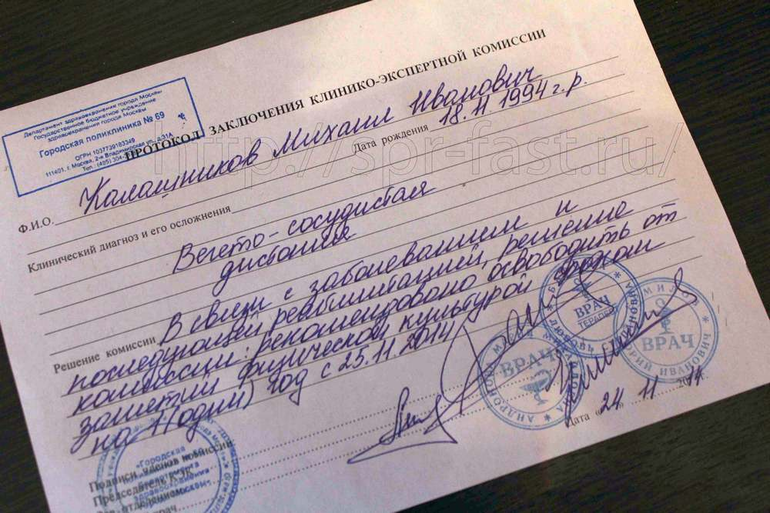 Департамент здравоохранения города Москвы
Государственное бюджетное учреждение
здравоохранения города Москвы
Городская поликлиника № 69
ОГРН 1037739183349
111401, г. Москва, 2-я Владимирская ул., д.31А
ПРОТОКОЛ ЗАКЛЮЧЕНИЯ КЛИНИКО-ЭКСПЕРТНОЙ КОМИССИИ
Ф.И.О. Калашников Михаил Иванович
Дата рождения 18.11 1994 г.р.
http://spr-fast.ru/
Клинический диагноз и его осложнения
Вегето-сосудистая
дистония
Решение комиссии В связи с заболеванием и
последующей реабилитацией, решение
комиссии: рекомендовано освободить от
занятий физической культурой сроком
на 1 (один) год с 25.11 2014
Подписи членов комиссии
Председатель КЭК
Зав. отделением
врач
Дата «24» 11
ВРАЧ
ВРАЧ
ВРАЧ
ИВАНОВИЧ
"Городская